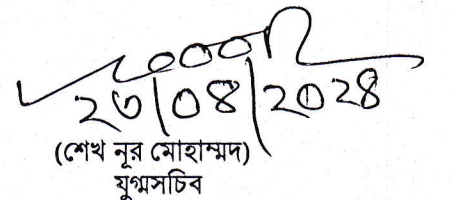 ২৩/০৪/২০২৪
(শেখ নূর মোহাম্মদ)
যুগ্মসচিব